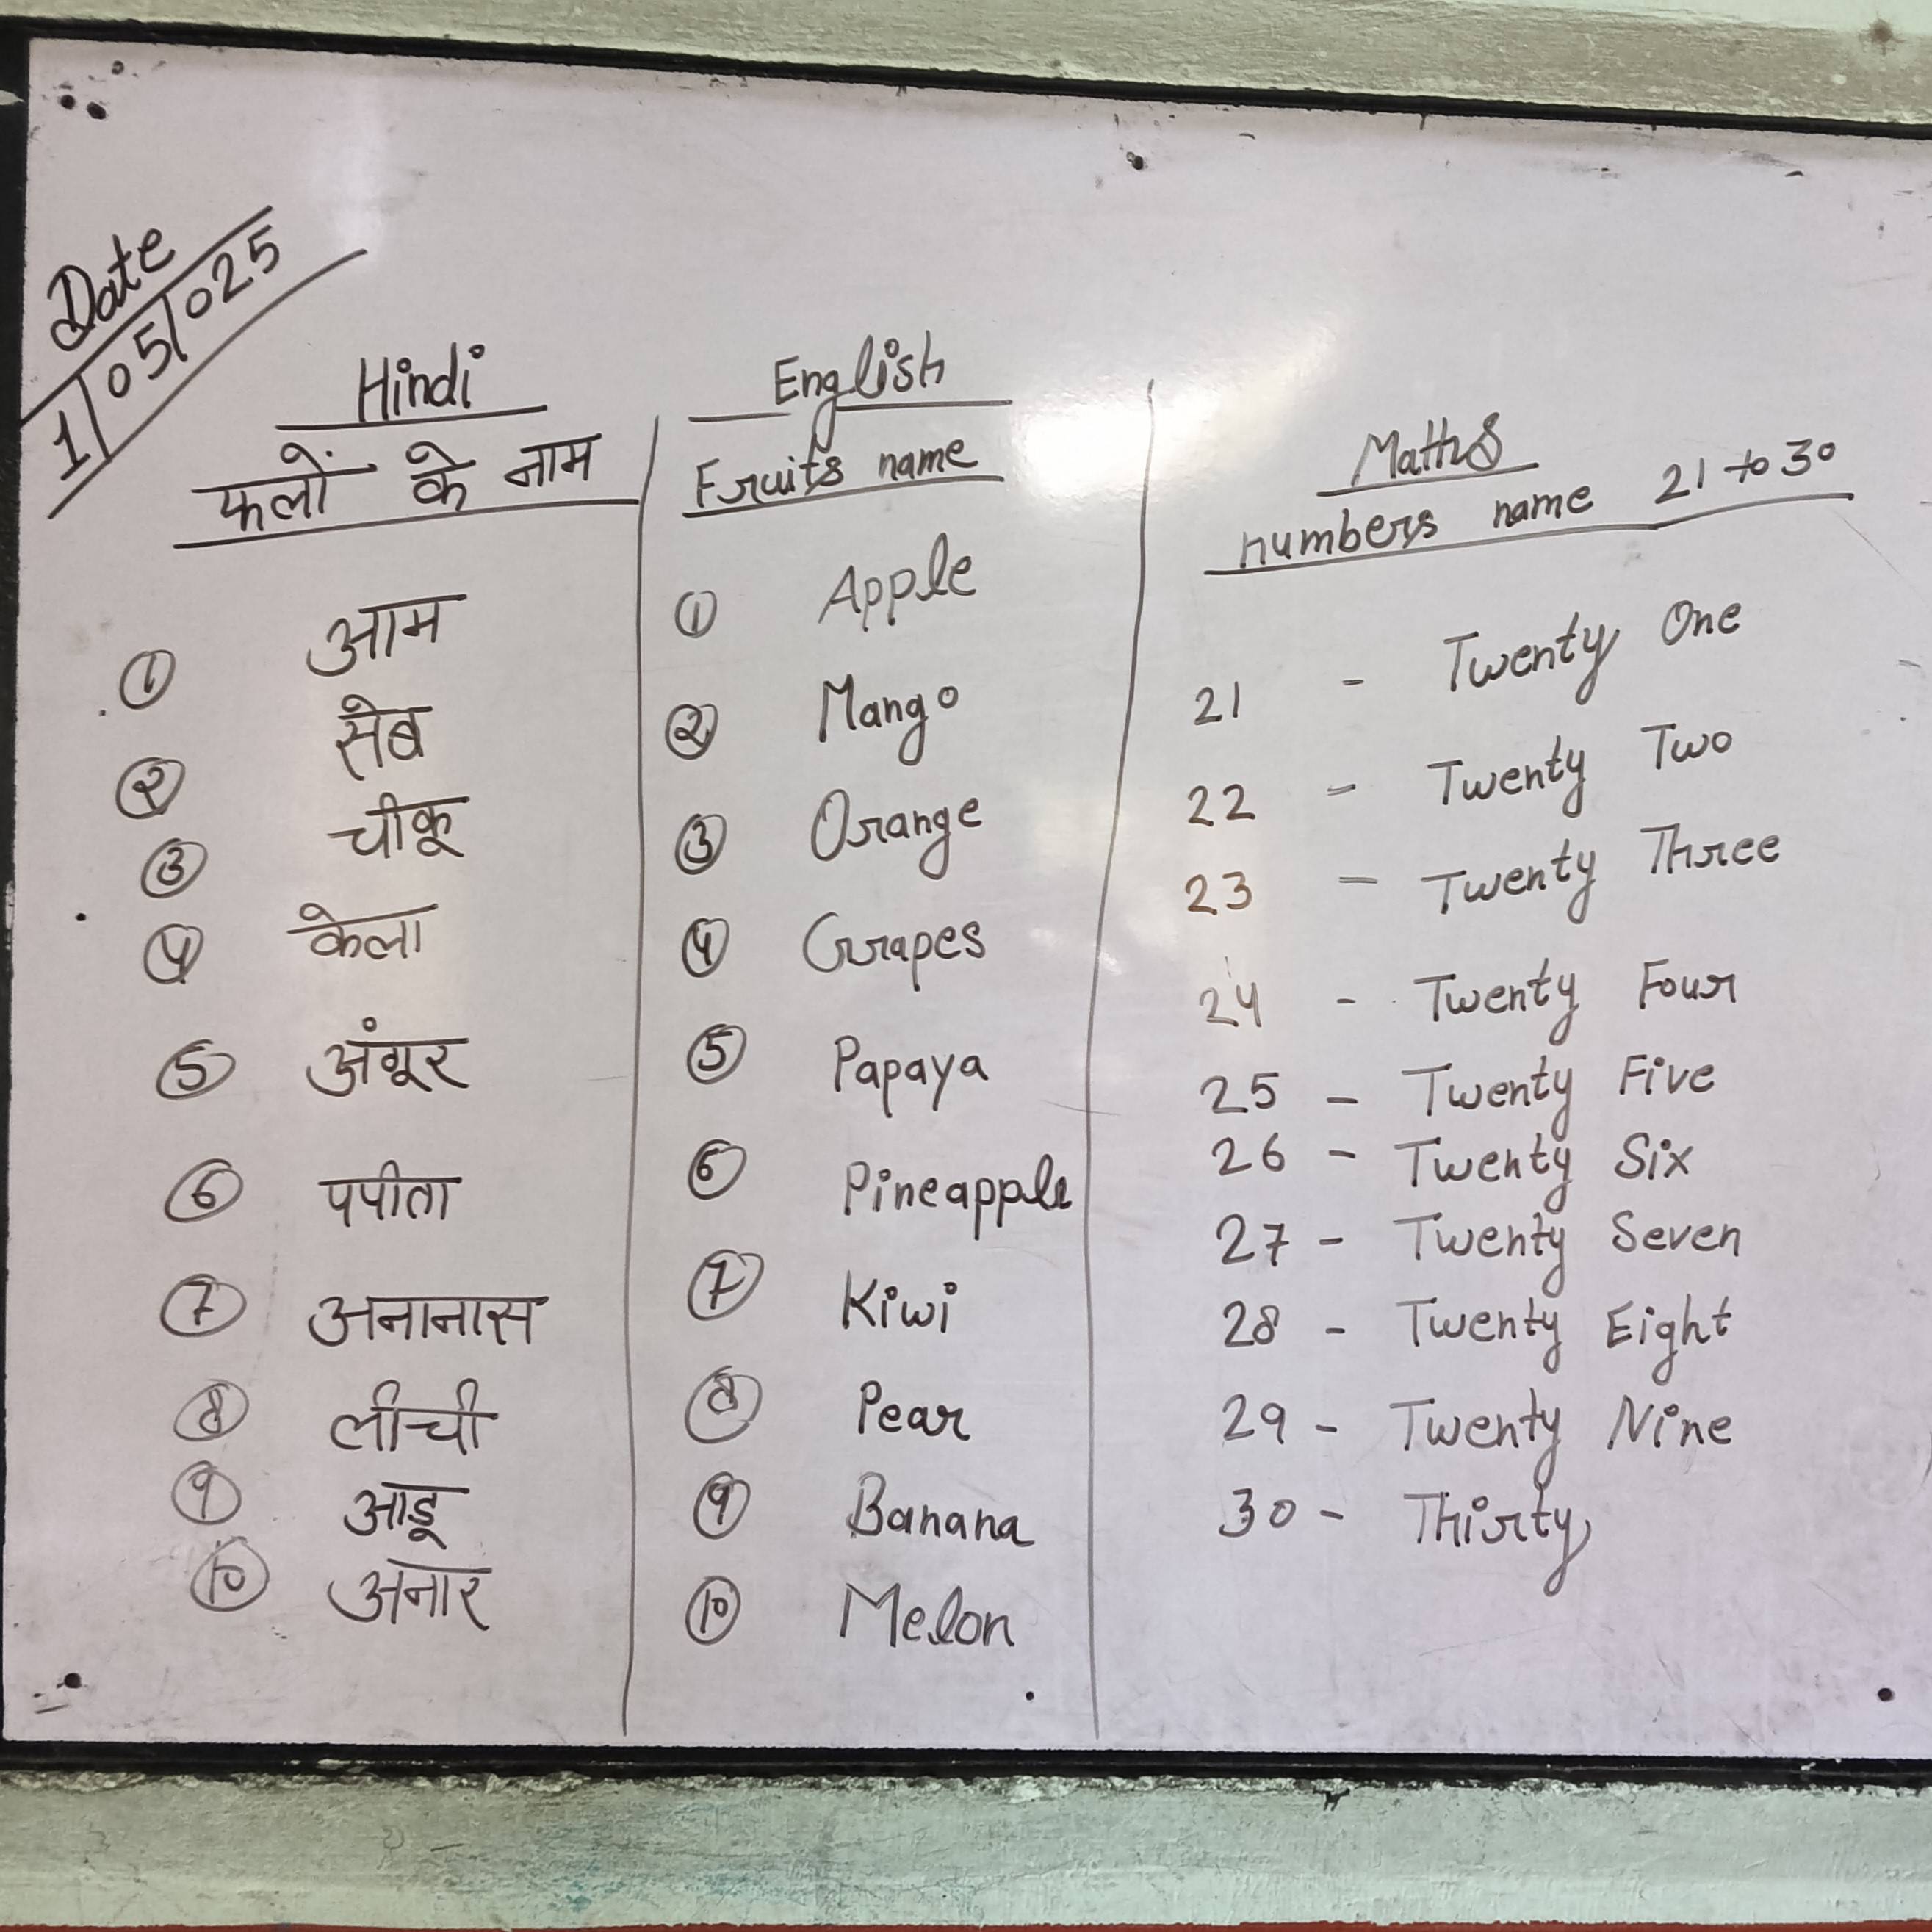 Date
1/05/025
Hindi
फलों के नाम
① आम
② सेब
③ चीकू
④ केला
⑤ अंगूर
⑥ पपीता
⑦ अनानास
⑧ लीची
⑨ आडू
⑩ अनार
English
Fruits name
① Apple
② Mango
③ Orange
④ Grapes
⑤ Papaya
⑥ Pineapple
⑦ Kiwi
⑧ Pear
⑨ Banana
⑩ Melon
Maths
numbers name 21 to 30
21 - Twenty One
22 - Twenty Two
23 - Twenty Three
24 - Twenty Four
25 - Twenty Five
26 - Twenty Six
27 - Twenty Seven
28 - Twenty Eight
29 - Twenty Nine
30 - Thirty